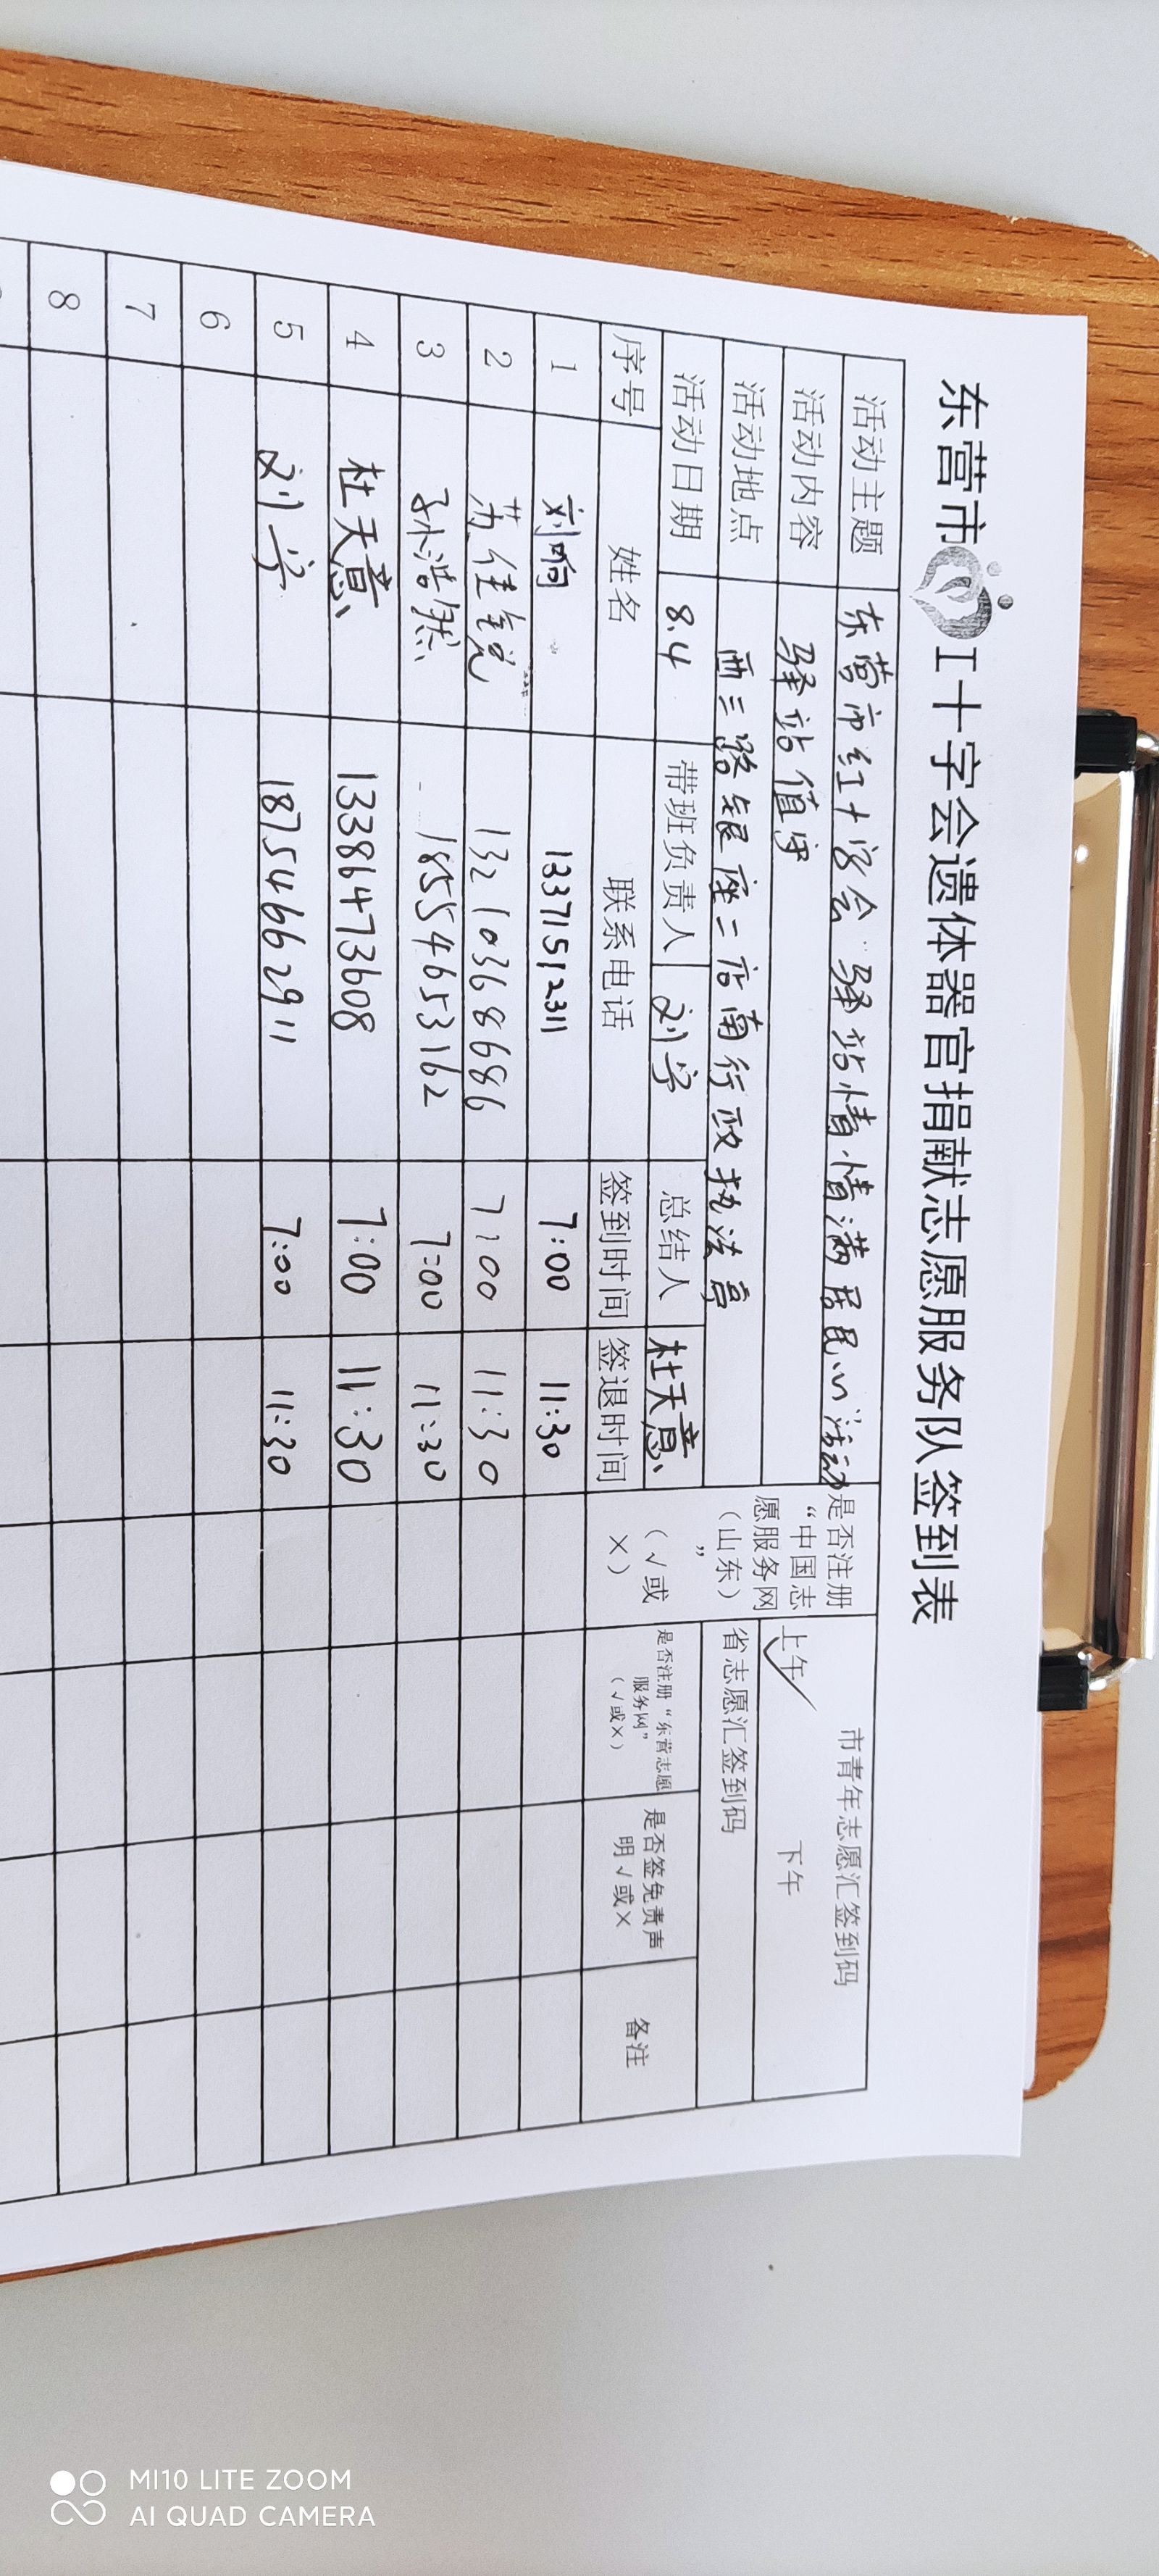 东营市工十字会遗体器官捐献志愿服务队签到表
活动主题 东营市红十字会 驿站情·情满居民心活动 是否注册“中国志愿服务网（山东）”（√或×） 市青年志愿汇签到码
活动内容 驿站值守 上午√ 下午
活动地点 西三路银座二店南行政执法亭 省志愿汇签到码
活动日期 8.4 带班负责人 刘宇 总结人 杜天意
序号 姓名 联系电话 签到时间 签退时间 是否注册“东营志愿服务网”（√或×） 是否签免责声明√或× 备注
1 刘响 13371512311 7:00 11:30
2 佳锐 13210368686 7:00 11:30
3 孙浩然 18554653162 7:00 11:30
4 杜天意 13386473608 7:00 11:30
5 刘宇 18754662911 7:00 11:30
6
7
8
MI10 LITE ZOOM
AI QUAD CAMERA